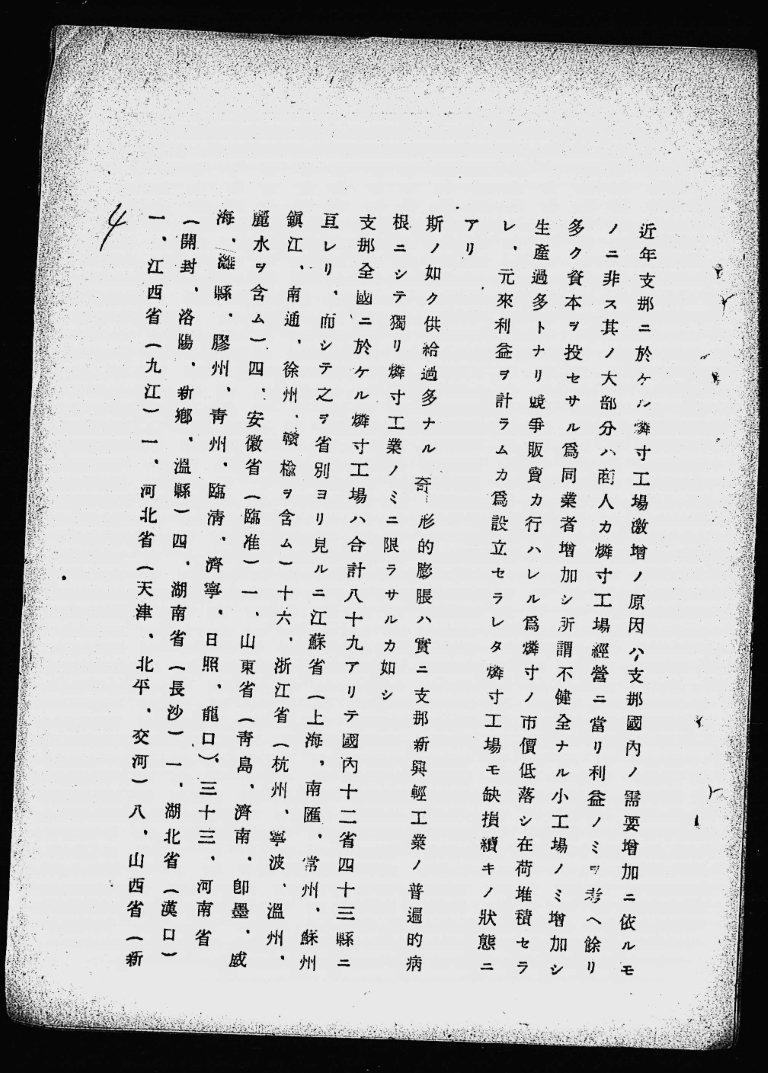 近年支那ニ於ケル燐寸工場激增ノ原因ハ支那國內ノ需要增加ニ依ルモ
ノニ非ス其ノ大部分ハ商人カ燐寸工場經營ニ當リ利益ノミヲ考ヘ餘リ
多ク資本ヲ投セサル爲同業者增加シ所謂不健全ナル小工場ノミ增加シ
生產過多トナリ競爭販賣カ行ハレル爲燐寸ノ市價低落シ在荷堆積セラ
レ、元來利益ヲ計ラムカ爲設立セラレタ燐寸工場モ缺損續キノ狀態ニ
アリ
斯ノ如ク供給過多ナル奇形的膨脹ハ實ニ支那新興輕工業ノ普遍的病
根ニシテ獨リ燐寸工業ノミニ限ラサルカ如シ
支那全國ニ於ケル燐寸工場ハ合計八十九アリテ國內十二省四十三縣ニ
亘レリ、而シテ之ヲ省別ヨリ見ルニ江蘇省（上海、南匯、常州、蘇州
鎭江、南通、徐州、贛楡ヲ含ム）十六、浙江省（杭州、寧波、溫州、
麗水ヲ含ム）四、安徽省（臨淮）一、山東省（靑島、濟南、卽墨、威
海、濰縣、膠州、靑州、臨淸、濟寧、日照、龍口）、三十三、河南省
（開封、洛陽、新鄕、溫縣）四、湖南省（長沙）一、湖北省（漢口）
一、江西省（九江）一、河北省（天津、北平、交河）八、山西省（新
4